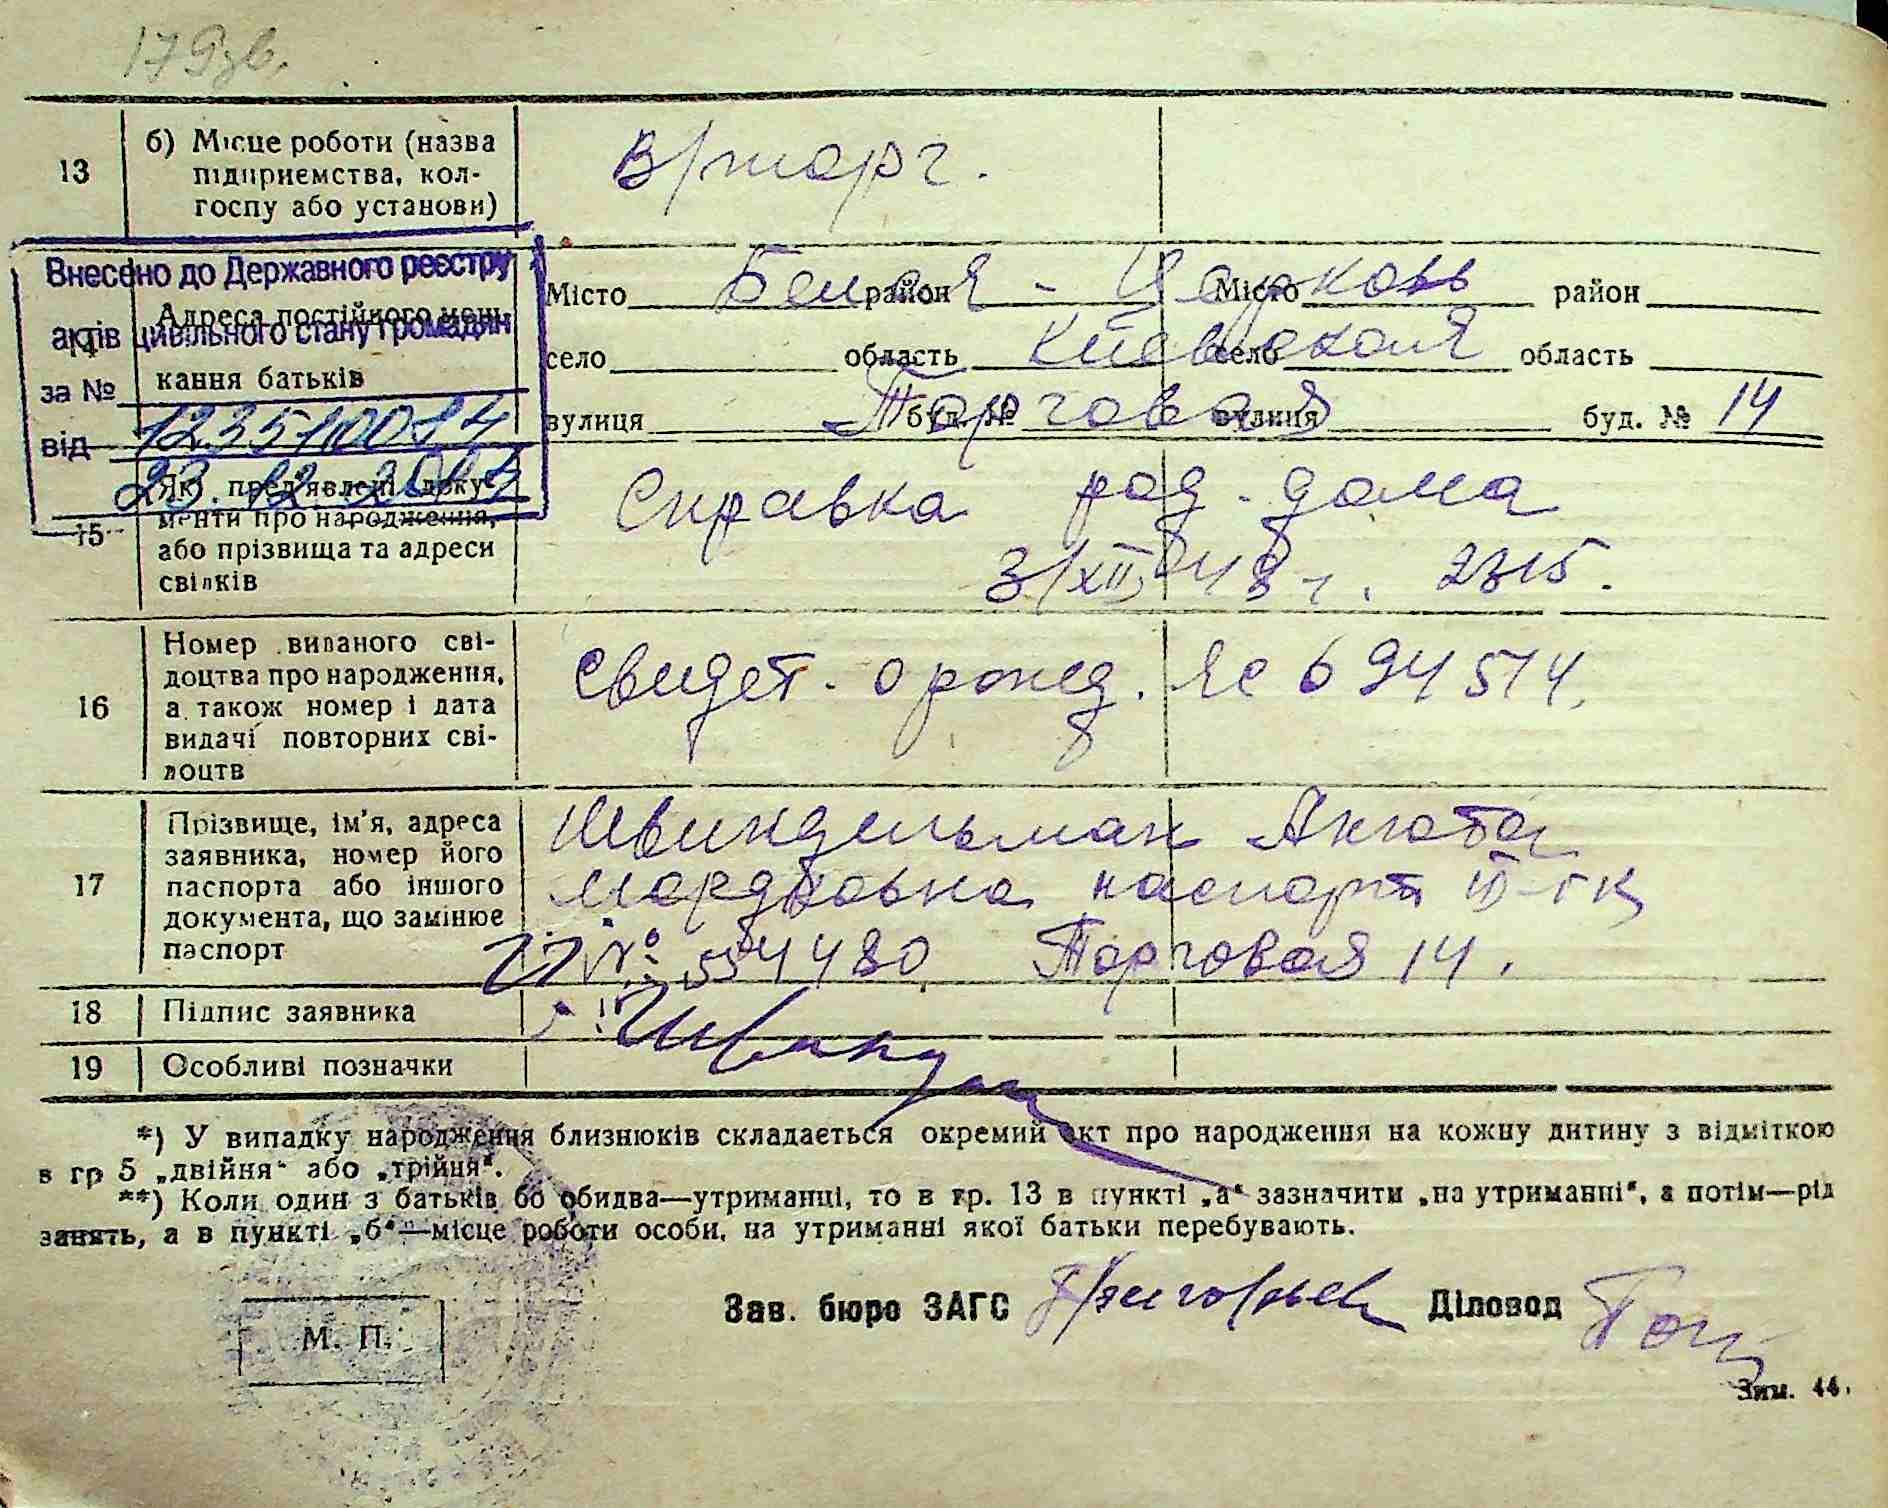 179зв.
13
б) Місце роботи (назва
підприємства, кол-
госпу або установи)
В/торг.
Внесено до Державного реєстру
актів цивільного стану громадян
за №
від 12351100
23.12.20
Адреса постійного меш-
кання батьків
Місто район Місто район
Белая - Церковь
село область село область
Киевская
вулиця буд. № вулиця буд. № 14
Торговая
15
Які пред'явлені доку-
менти про народження,
або прізвища та адреси
свідків
Справка род. дома
3/XII 48 г. 2315.
16
Номер виданого сві-
доцтва про народження,
а також номер і дата
видачі повторних сві-
доцтв
Свидет. о рожд. ЯС 694514.
17
Прізвище, ім'я, адреса
заявника, номер його
паспорта або іншого
документа, що замінює
паспорт
Швиндельман
Мордковна паспорт
№ 554480 Торговая 14.
18
Підпис заявника
19
Особливі позначки
*) У випадку народження близнюків складається окремий акт про народження на кожну дитину з відміткою
в гр 5 „двійня" або „трійня".
**) Коли один з батьків бо обидва—утриманці, то в гр. 13 в пункті „а" зазначити „на утриманні", а потім—рід
занять, а в пункті „б"—місце роботи особи, на утриманні якої батьки перебувають.
Зав. бюро ЗАГС Григорьев Діловод
М. П.
Зим. 44.